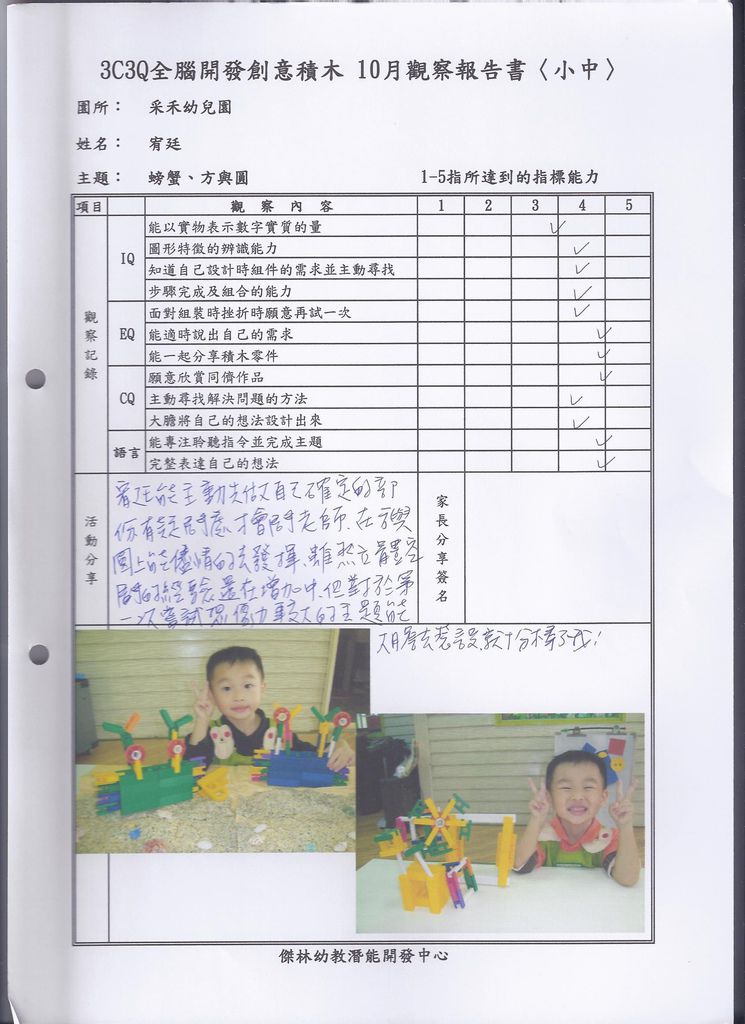 3C3Q全腦開發創意積木 10月觀察報告書〈小中〉
園所： 采禾幼兒園
姓名： 宥廷
主題： 螃蟹、方與圓 1-5指所達到的指標能力
項目 觀察內容 1 2 3 4 5
觀察記錄
IQ
能以實物表示數字實質的量
圖形特徵的辨識能力
知道自己設計時組件的需求並主動尋找
步驟完成及組合的能力
EQ
面對組裝時挫折時願意再試一次
能適時說出自己的需求
能一起分享積木零件
CQ
願意欣賞同儕作品
主動尋找解決問題的方法
大膽將自己的想法設計出來
語言
能專注聆聽指令並完成主題
完整表達自己的想法
活動分享
宥廷能主動先做自己確定的部
份有疑問處才會問老師.在
圖上能儘情的去發揮.雖然立體空
間的經驗還在增加中.但對於第
一次嘗試 較大的主題能
大膽去 就十分棒了哦!
家長分享簽名
傑林幼教潛能開發中心